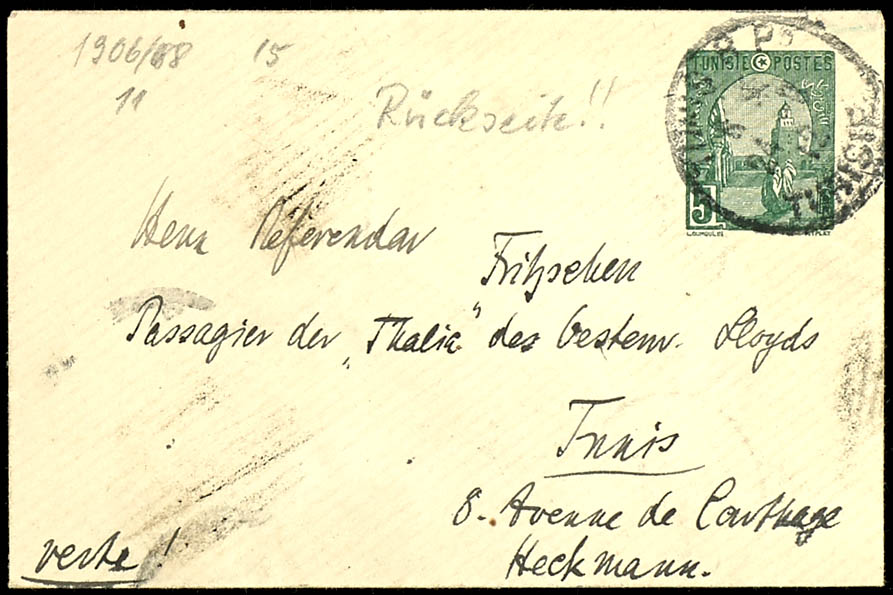 1906/08 15
11
Rückseite!!
TUNISIE POSTES
5
TUNISIE
Herrn Referendar
Fritzschen
Passagier der „Thalia" des Oesterr. Lloyds
Tunis
8. Avenue de Carthage
Heckmann.
verte!